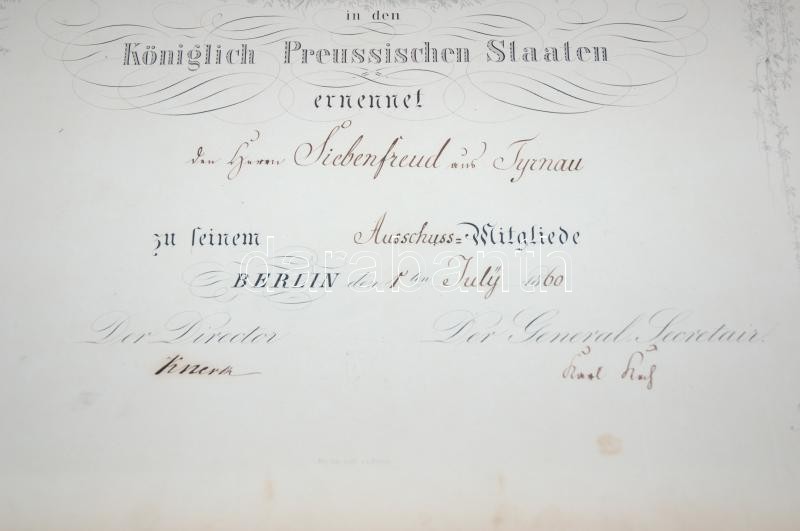 in den
Königlich Preussischen Staaten
ernennet
den Herrn Siebenfreud aus Tyrnau
zu seinem Ausschuss=Mitgliede
darabanth
BERLIN den 1ten Julÿ 1860
Der Director Der General Secretair.
Knerk Karl Koch